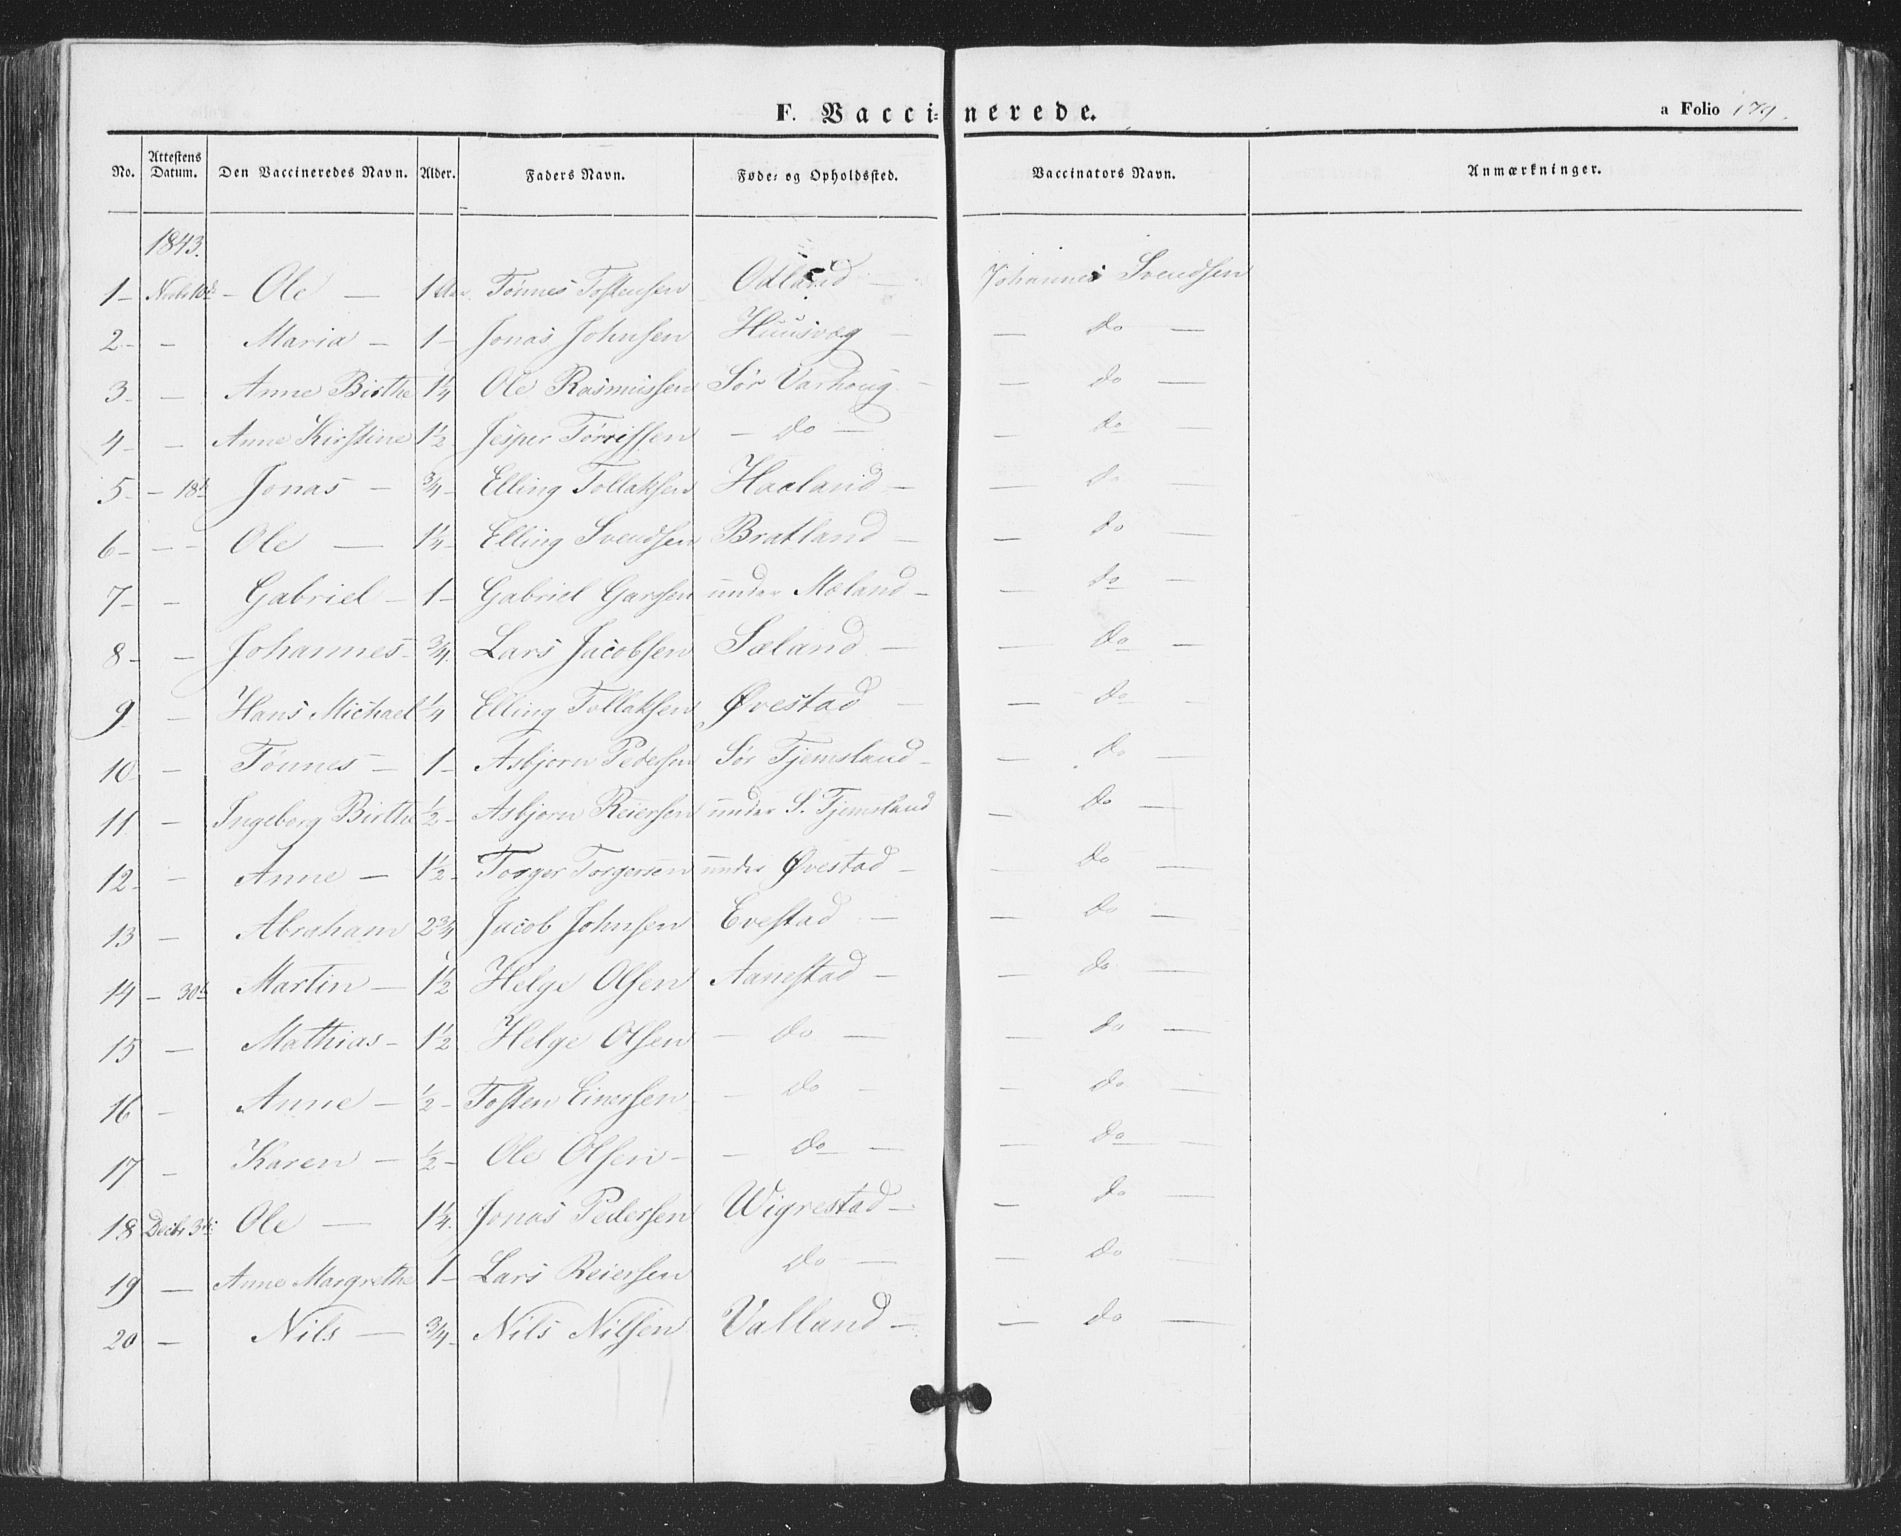 F. Vaccinerede.
a Folio 179.
No. Attestens Datum. Den Vaccineredes Navn. Alder. Faders Navn. Føde- og Opholdssted. Vaccinators Navn. Anmærkninger.
1843.
1 – Novbr 10de – Ole – 1 Aar. Tönnes Tostensen Odland – Johannes Svendsen
2 – – Maria – 1 – Jonas Johnsen Huusvæg – – do –
3 – – Anne Birthe 1¼ Ole Rasmussen Sör Varhoug – – do –
4 – – Anne Kirstine 1½ Jesper Törrissen – do – – do –
5 – – 18de Jonas – ¾ – Elling Tollaksen Haaland – – do –
6 – – – Ole – 1¼ – Elling Svendsen Bratland – – do –
7 – – Gabriel – 1 – Gabriel under Mæland – – do –
8 – – Johannes – ¾ Lars Jacobsen Sæland – – do –
9 – Hans Michael ¼ Elling Tollaksen Øvestad – – do –
10 – Tönnes – 1 – Asbjorn Pedersen Sör Tjemsland – – do –
11 – Ingeborg Birthe ½ – Asbjorn Reiersen under S. Tjemsland – do –
12 – – Anne – 1½ – Torger Torgersen under Øvestad – – do –
13 – Abraham 2¾ Jacob Johnsen Evestad – – do –
14 – 30te Martin – 1½ Helge Olsen Aanestad – – do –
15 – Mathias – 1½ Helge Olsen – do – – do –
16 – Anne – ½ – Tosten Einersen – do – – do –
17 – Karen – ½ – Ole Olsen – – do – – do –
18 Decbr 3die Ole – 1¼. Jonas Pedersen Wigrestad – – do –
19 – Anne Margrethe 1 – Lars Reiersen do – – do –
20 – Nils – ¾ – Nils Nilsen Valland – – do –